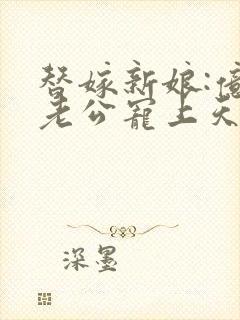 替嫁新娘:億
老公寵上天
深墨